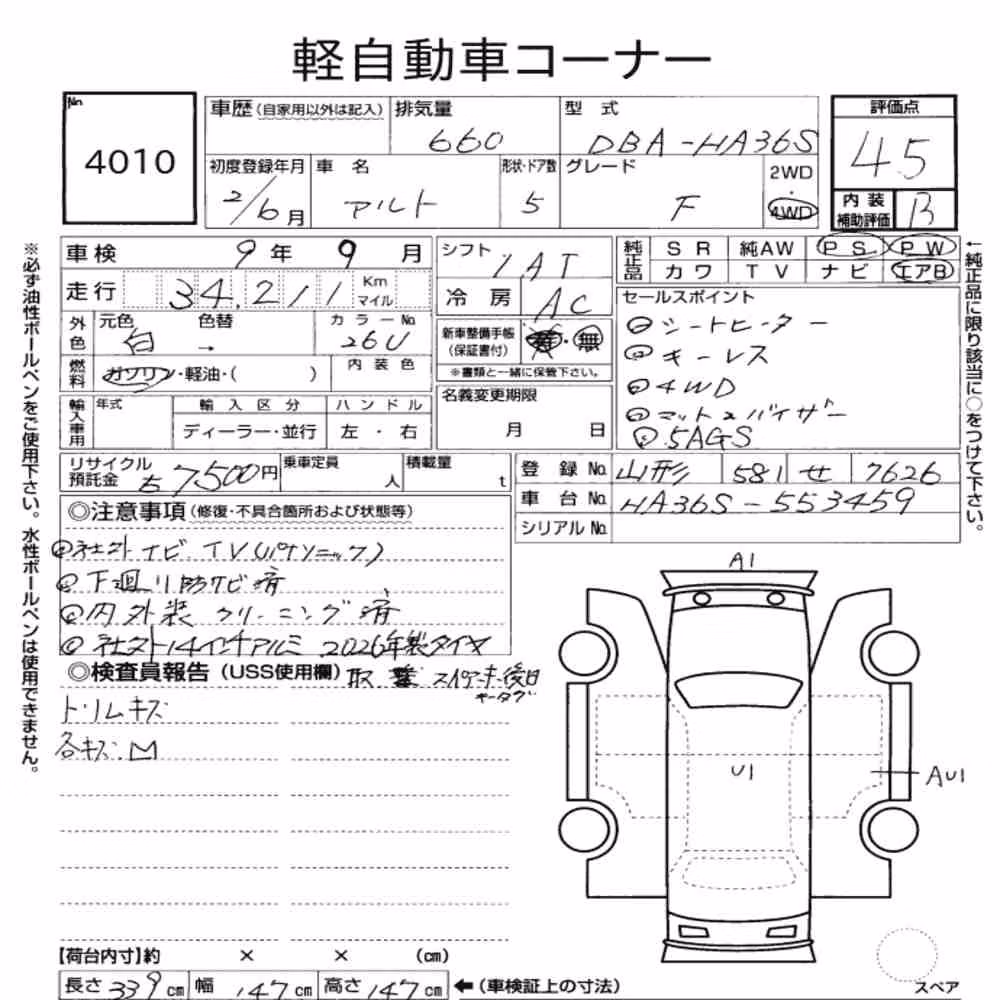 軽自動車コーナー
No
4010
車歴(自家用以外は記入) 排気量 660 型式 DBA-HA36S
初度登録年月 2/6月 車名 アルト 形状・ドア数 5 グレード F 2WD 4WD
評価点
45
内装補助評価 B
車検 9年9月
走行 34,211 Km マイル
外色 元色 白 色替 → カラーNo 26U
燃料 ガソリン・軽油・( ) 内装色
輸入車用 年式 輸入区分 ハンドル
ディーラー・並行 左・右
シフト IAT
冷房 AC
新車整備手帳(保証書付) 有・無
※書類と一緒に保管下さい。
名義変更期限
月 日
純正品 SR 純AW PS PW
カワ TV ナビ エアB
セールスポイント
◎シートヒーター
◎キーレス
◎4WD
◎マット&バイザー
◎5AGS
リサイクル預託金 7500円 乗車定員 人 積載量 t
登録No. 山形 581 せ 7626
車台No. HA36S-553459
シリアルNo.
◎注意事項(修復・不具合箇所および状態等)
◎社外ナビ.TV(パナソニック)
◎下廻り防サビ済
◎内外装クリーニング済
◎社外14インチアルミ 2026年製タイヤ
◎検査員報告(USS使用欄)
取 スペアキー後日
トリムキズ
各キズ.凹
A1
U1
AU1
【荷台内寸】約 × × (cm)
長さ 339 cm 幅 147 cm 高さ 147 cm ←(車検証上の寸法)
スペア
※必ず油性ボールペンをご使用下さい。水性ボールペンは使用できません。
←純正品に限り該当に○をつけて下さい。